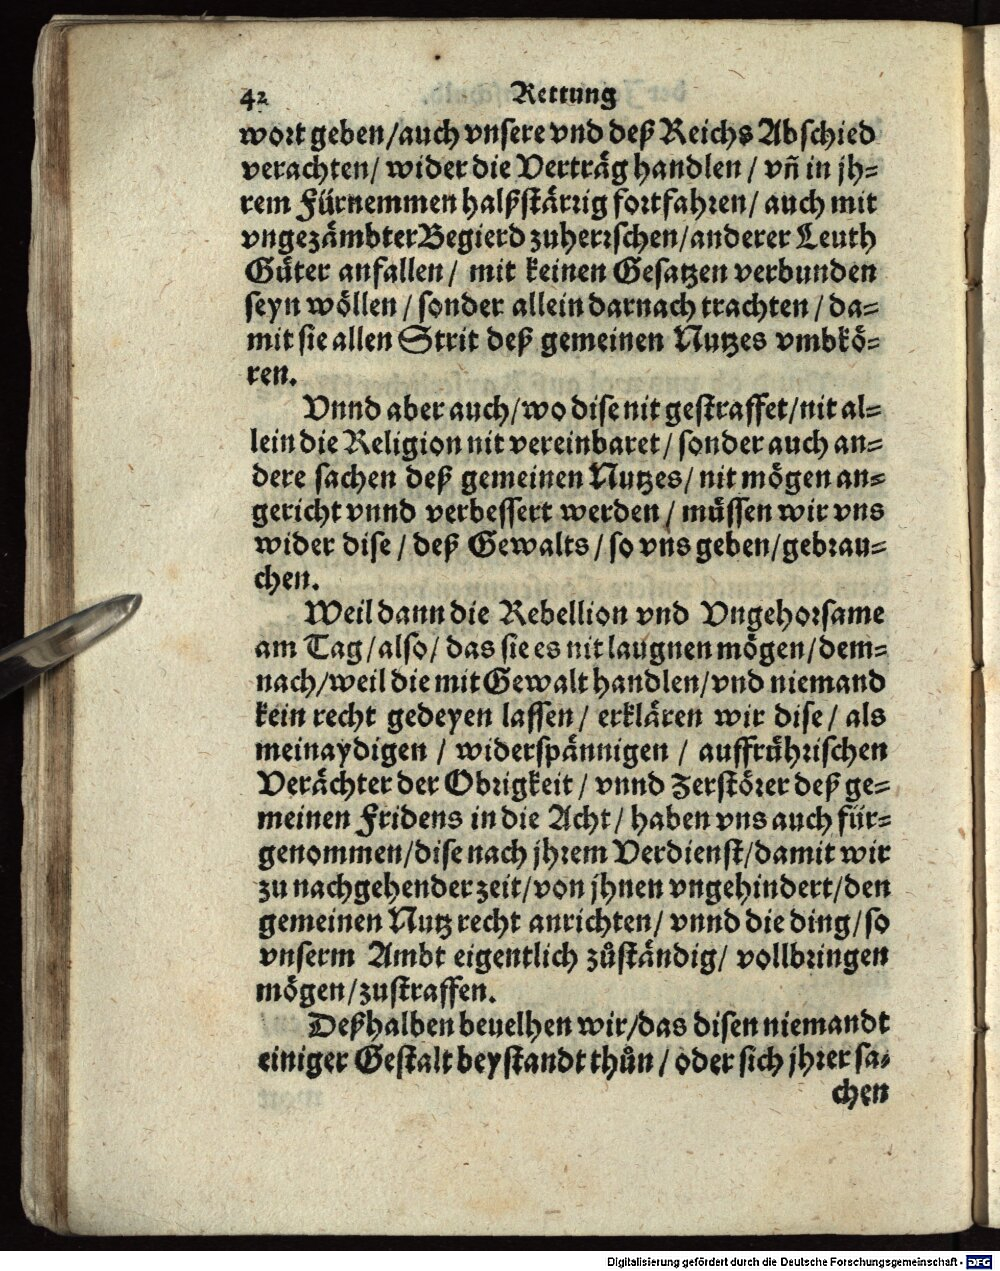 42 Rettung
wort geben/auch vnsere vnd deß Reichs Abschied
verachten/ wider die Verträg handlen / vñ in jh=
rem Fürnemmen halßstärrig fortfahren/ auch mit
vngezämbter Begierd zuherrschen/anderer Leuth
Güter anfallen/ mit keinen Gesatzen verbunden
seyn wöllen / sonder allein darnach trachten / da=
mit sie allen Strit deß gemeinen Nutzes vmbkö=
ren.
Vnnd aber auch/wo dise nit gestraffet/nit al=
lein die Religion nit vereinbaret / sonder auch an=
dere sachen deß gemeinen Nutzes/ nit mögen an=
gericht vnnd verbessert werden / müssen wir vns
wider dise / deß Gewalts / so vns geben/gebrau=
chen.
Weil dann die Rebellion vnd Vngehorsame
am Tag / also/ das sie es nit laugnen mögen/dem=
nach/weil die mit Gewalt handlen/vnd niemand
kein recht gedeyen lassen / erklären wir dise / als
meinaydigen / widerspännigen / auffrührischen
Verächter der Obrigkeit / vnnd Zerstörer deß ge=
meinen Fridens in die Acht / haben vns auch für=
genommen/dise nach jhrem Verdienst/damit wir
zu nachgehender zeit/von jhnen vngehindert/den
gemeinen Nutz recht anrichten/ vnnd die ding/so
vnserm Ambt eigentlich zůständig/ vollbringen
mögen/zustraffen.
Deßhalben beuelhen wir/das disen niemandt
einiger Gestalt beystandt thůn / oder sich jhrer sa=
chen
Digitalisierung gefördert durch die Deutsche Forschungsgemeinschaft - DFG